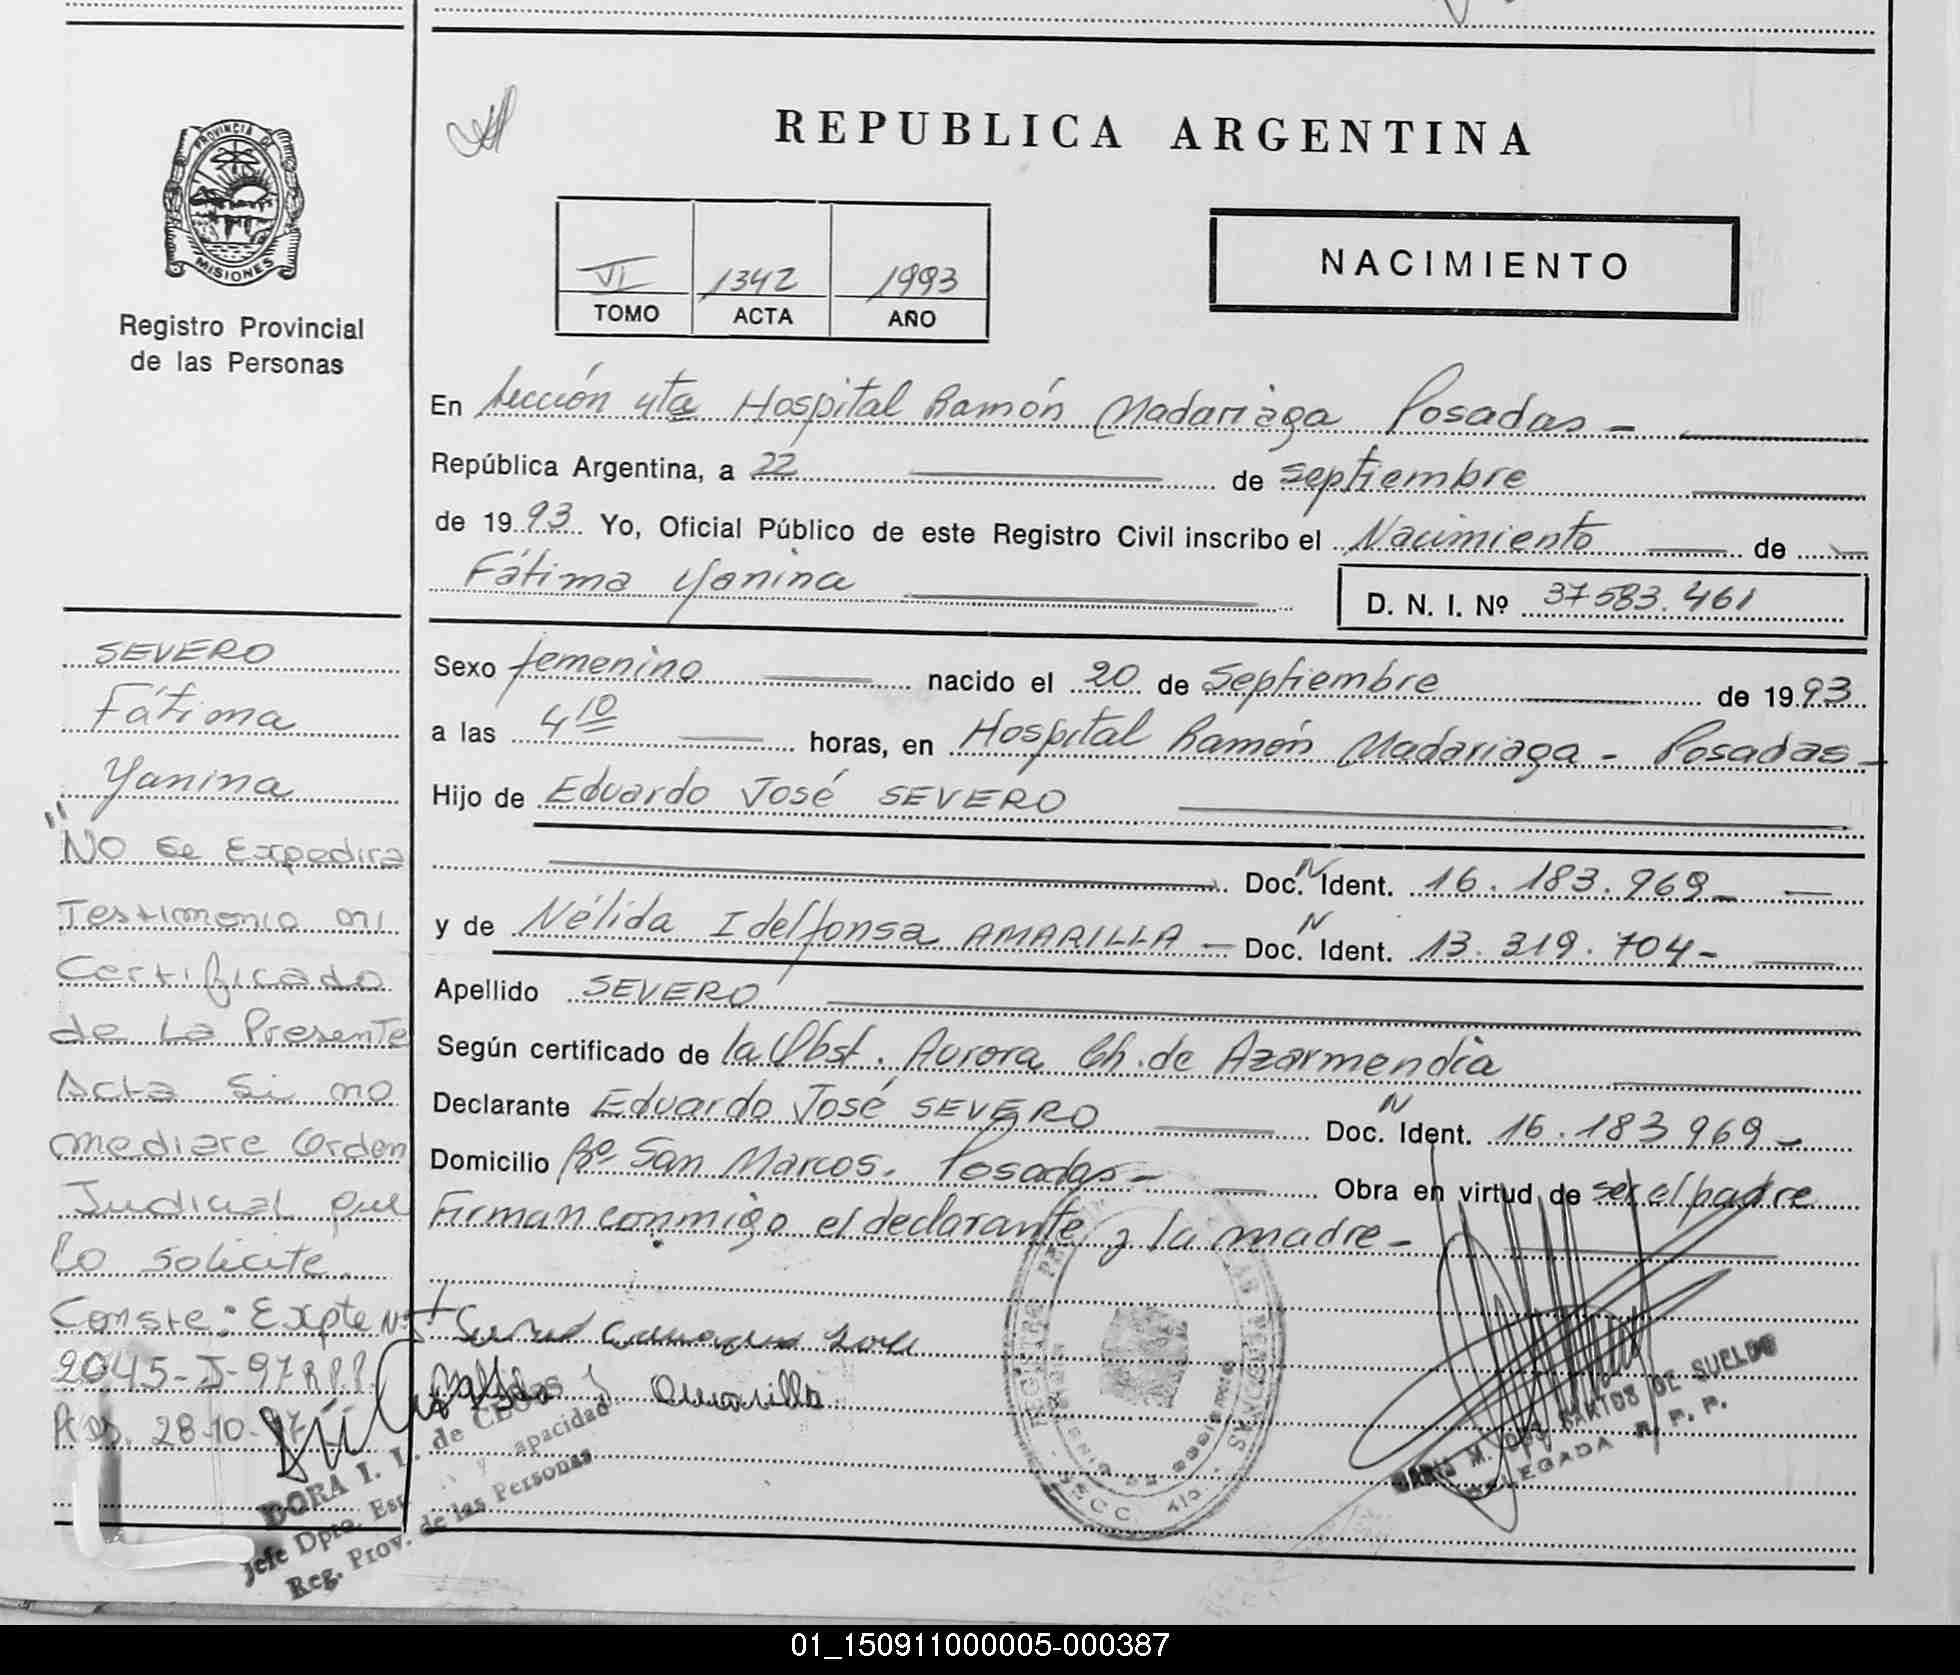 REPUBLICA ARGENTINA
PROVINCIA DE
MISIONES
Registro Provincial
de las Personas
VI 1342 1993
TOMO ACTA AÑO
NACIMIENTO
En Sección 4ta Hospital Ramón Madariaga Posadas -
República Argentina, a 22 de septiembre
de 1993 Yo, Oficial Público de este Registro Civil inscribo el Nacimiento de
Fátima Yanina
D. N. I. Nº 37583.461
Sexo femenino nacido el 20 de Septiembre de 1993
a las 4 10 horas, en Hospital Ramón Madariaga - Posadas -
Hijo de Eduardo José SEVERO
Doc. N Ident. 16.183.969-
y de Nélida Idelfonsa AMARILLA - Doc. N Ident. 13.319.704-
Apellido SEVERO
Según certificado de la Obst. Aurora Ch. de Azarmendia
Declarante Eduardo José SEVERO Doc. N Ident. 16.183969-
Domicilio Bº San Marcos. Posadas - Obra en virtud de ser el padre
Firman conmigo el declarante y la madre -
SEVERO
Fátima
Yanina
"No se Expedira
Testimonio ni
Certificado
de La Presente
Acta si no
mediare Orden
Judicial que
lo solicite.
Conste: Expte Nº
2045-J-97 R.P.P.
Pds. 28-10-97
Amarilla
DORA I. L. de CEGAS
Jefe Dpto. Est. y apacidad
Reg. Prov. de las Personas
SECC. 4ta.
MARIA M. DOS SANTOS DE SUELDO
DELEGADA R. P. P.
01_150911000005-000387